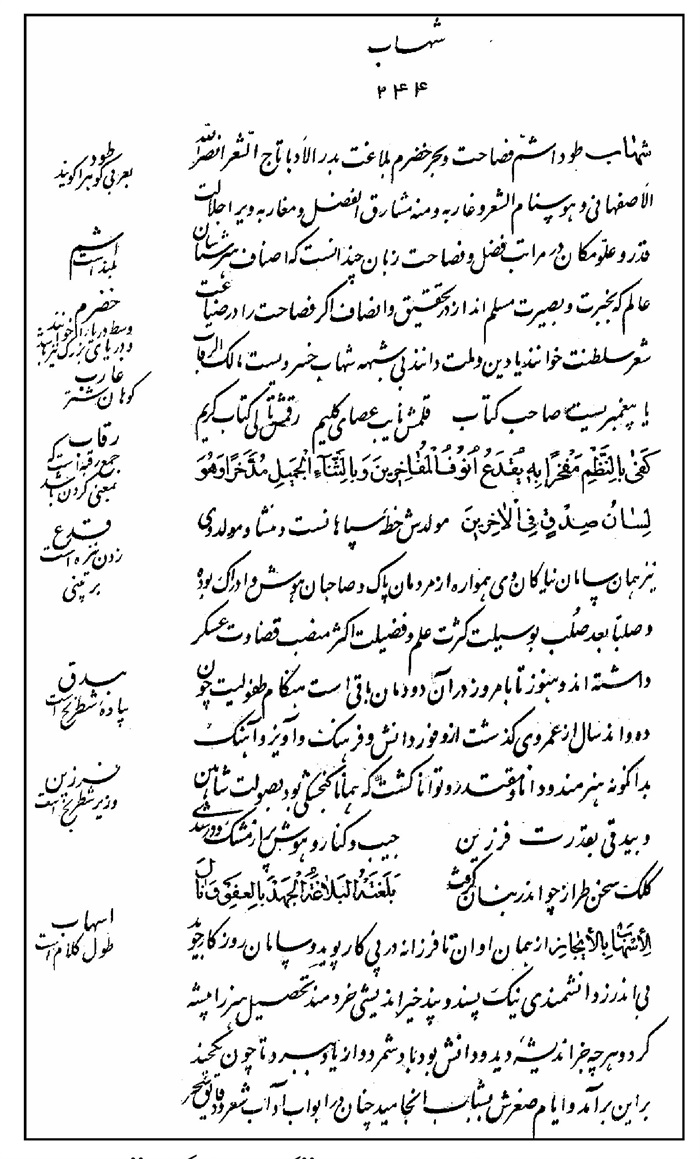 شهاب
۲۴۴
شهاب طود اشم فصاحت و بحر خضرم بلاغت بدر الادبا تاج الشعرا نصر الله
الاصفهانی و هو سنام الشعر و غاربه و منه مشارق الفضل و مغاربه ویرا جلالت
قدر و علو مکان در مراتب فضل و فصاحت زبان چندانست که اصناف هنرشناسان
عالم که بخبرت و بصیرت مسلم اند از در تحقیق و انصاف اگر فصاحت را در صناعت
شعر سلطنت خوانند یا دین و ملت دانند بی شبهه شهاب خسرویست مالک الرقاب
یا پیغمبریست صاحب کتاب قلمش نایب عصای کلیم رقمش ثانی کتاب کریم
کفی بالنظم مفخرا به یقدع انوف المفاخرین و بالثناء الجمیل مدخرا و هو
لسان صدق فی الاخرین مولدش خطه سپاهانست و منشا و مولد وی
نیز همان سامان نیاکان وی همواره از مردمان پاک و صاحبان هوش و ادراک بوده
و صلبا بعد صلب بوسیلت کثرت علم و فضیلت اکثر منصب قضاوت عسکر
داشته اند و هنوز تا بامروز در آن دودمان باقی است هنگام طفولیت چون
ده و اند سال از عمر وی گذشت از وفور دانش و فرهنگ و آویز و آهنگ
بدانگونه هنرمند و دانا و مقتدر و توانا گشت که همانا کنجشکی بود بصولت شاهین
و بیدقی بقدرت فرزین جیب و کنار و هوش پر از مشک و در شدی
کلک سخن طراز چو اندر بنان گرفت بلغته البلاغة الجهد بالعفو و نال
الاسهاب بالایجاز از همان اوان تا فرزانه در پی کار پوید و سامان روزگار جوید
بی اندرز دانشمندی نیک پسند و پند خیراندیشی خردمند تحصیل هنر را پیشه
کرد و هرچه جز اندیشه دید و دانش بود باد شمرد و از یاد ببرد تا چون یکچند
بر این برآمد و ایام صغرش بشباب انجامید چنان در ابواب آداب شعر و دقایق سحر
طود
بعربی کوه را گویند
اشم
بلند است
خضرم
وسط دریا را خوانند
و دریای بزرگ نیز باشد
غارب
کوهان شتر
رقاب
جمع رقبه است که
بمعنی گردن باشد
قدع
زدن نیزه است
بر بینی
بیدق
پیادهٔ شطرنج است
فرزین
وزیر شطرنج است
اسهاب
طول کلام است